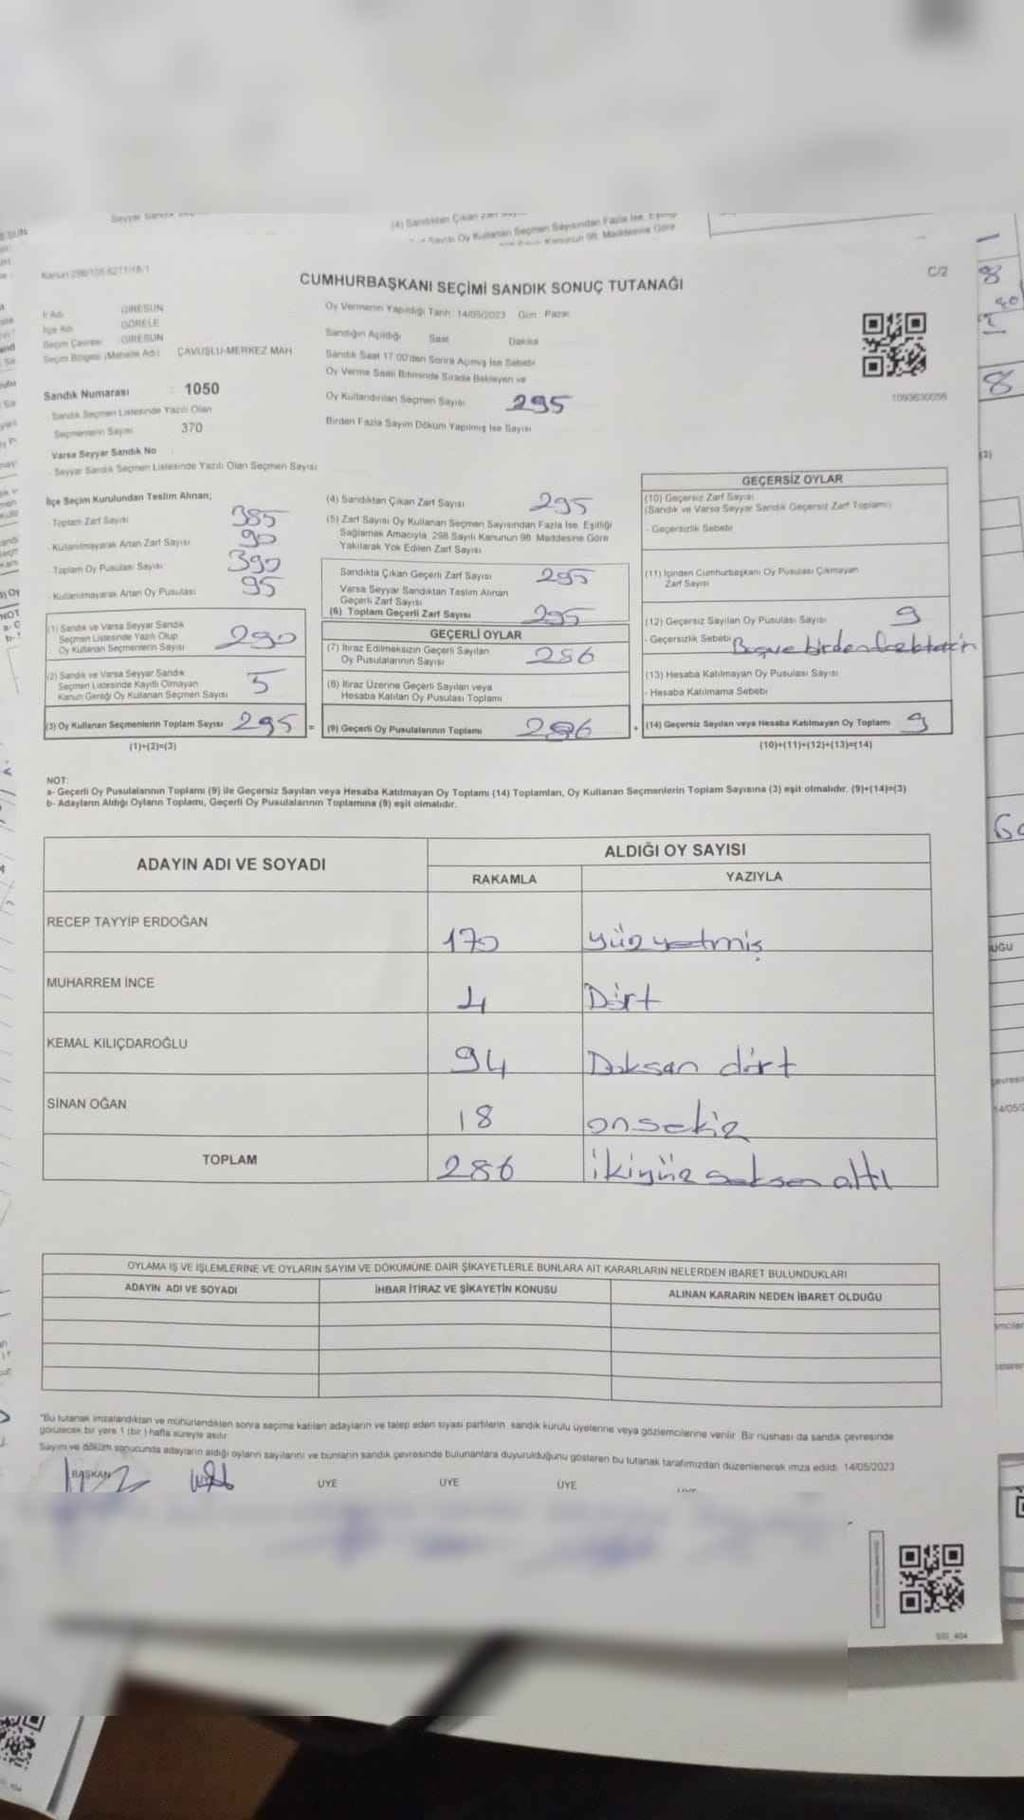 (4) Sandıktan Çıkan
Oy Kullanan Seçmen Sayısından Fazla İse, Eşitliği
Kanunun 98. Maddesine Göre
C/2
CUMHURBAŞKANI SEÇİMİ SANDIK SONUÇ TUTANAĞI
İl Adı : GİRESUN
İlçe Adı : GÖRELE
Seçim Çevresi : GİRESUN
Seçim Bölgesi (Mahalle Adı) : ÇAVUŞLU-MERKEZ MAH.
Oy Vermenin Yapıldığı Tarih: 14/05/2023 Gün: Pazar
Sandığın Açıldığı Saat Dakika
Sandık Saat 17.00'den Sonra Açılmış İse Sebebi
Oy Verme Saati Bitiminde Sırada Bekleyen ve
Oy Kullandırılan Seçmen Sayısı 295
Birden Fazla Sayım Döküm Yapılmış İse Sayısı
Sandık Numarası : 1050
Sandık Seçmen Listesinde Yazılı Olan
Seçmenlerin Sayısı : 370
Varsa Seyyar Sandık No
Seyyar Sandık Seçmen Listesinde Yazılı Olan Seçmen Sayısı
İlçe Seçim Kurulundan Teslim Alınan;
Toplam Zarf Sayısı 385
- Kullanılmayarak Artan Zarf Sayısı 90
- Toplam Oy Pusulası Sayısı 390
- Kullanılmayarak Artan Oy Pusulası 95
(1) Sandık ve Varsa Seyyar Sandık
Seçmen Listesinde Yazılı Olup
Oy Kullanan Seçmenlerin Sayısı 290
(2) Sandık ve Varsa Seyyar Sandık
Seçmen Listesinde Kayıtlı Olmayan
Kanun Gereği Oy Kullanan Seçmen Sayısı 5
(3) Oy Kullanan Seçmenlerin Toplam Sayısı 295 =
(1)+(2)=(3)
(4) Sandıktan Çıkan Zarf Sayısı 295
(5) Zarf Sayısı Oy Kullanan Seçmen Sayısından Fazla İse, Eşitliği
Sağlamak Amacıyla, 298 Sayılı Kanunun 98. Maddesine Göre
Yakılarak Yok Edilen Zarf Sayısı
Sandıkta Çıkan Geçerli Zarf Sayısı 295
Varsa Seyyar Sandıktan Teslim Alınan
Geçerli Zarf Sayısı
(6) Toplam Geçerli Zarf Sayısı 295
GEÇERLİ OYLAR
(7) İtiraz Edilmeksizin Geçerli Sayılan
Oy Pusulalarının Sayısı 286
(8) İtiraz Üzerine Geçerli Sayılan veya
Hesaba Katılan Oy Pusulası Toplamı
(9) Geçerli Oy Pusulalarının Toplamı 286 +
GEÇERSİZ OYLAR
(10) Geçersiz Zarf Sayısı
(Sandık ve Varsa Seyyar Sandık Geçersiz Zarf Toplamı)
- Geçersizlik Sebebi
(11) İçinden Cumhurbaşkanı Oy Pusulası Çıkmayan
Zarf Sayısı
(12) Geçersiz Sayılan Oy Pusulası Sayısı 9
- Geçersizlik Sebebi Boş ve birden fazla tercih
(13) Hesaba Katılmayan Oy Pusulası Sayısı
- Hesaba Katılmama Sebebi
(14) Geçersiz Sayılan veya Hesaba Katılmayan Oy Toplamı 9
(10)+(11)+(12)+(13)=(14)
NOT:
a- Geçerli Oy Pusulalarının Toplamı (9) ile Geçersiz Sayılan veya Hesaba Katılmayan Oy Toplamı (14) Toplamları, Oy Kullanan Seçmenlerin Toplam Sayısına (3) eşit olmalıdır. (9)+(14)=(3)
b- Adayların Aldığı Oyların Toplamı, Geçerli Oy Pusulalarının Toplamına (9) eşit olmalıdır.
ADAYIN ADI VE SOYADI ALDIĞI OY SAYISI
RAKAMLA YAZIYLA
RECEP TAYYİP ERDOĞAN 170 yüz yetmiş
MUHARREM İNCE 4 Dört
KEMAL KILIÇDAROĞLU 94 Doksan dört
SİNAN OĞAN 18 onsekiz
TOPLAM 286 ikiyüz seksen altı
OYLAMA İŞ VE İŞLEMLERİNE VE OYLARIN SAYIM VE DÖKÜMÜNE DAİR ŞİKAYETLERLE BUNLARA AİT KARARLARIN NELERDEN İBARET BULUNDUKLARI
ADAYIN ADI VE SOYADI İHBAR İTİRAZ VE ŞİKAYETİN KONUSU ALINAN KARARIN NEDEN İBARET OLDUĞU
"Bu tutanak imzalandıktan ve mühürlendikten sonra seçime katılan adayların ve talep eden siyasi partilerin sandık kurulu üyelerine veya gözlemcilerine verilir. Bir nüshası da sandık çevresinde
görülecek bir yere 1 (bir) hafta süreyle asılır.
Sayım ve döküm sonucunda adayların aldığı oyların sayılarını ve bunların sandık çevresinde bulunanlara duyurulduğunu gösteren bu tutanak tarafımızdan düzenlenerek imza edildi. 14/05/2023
BAŞKAN ÜYE ÜYE ÜYE